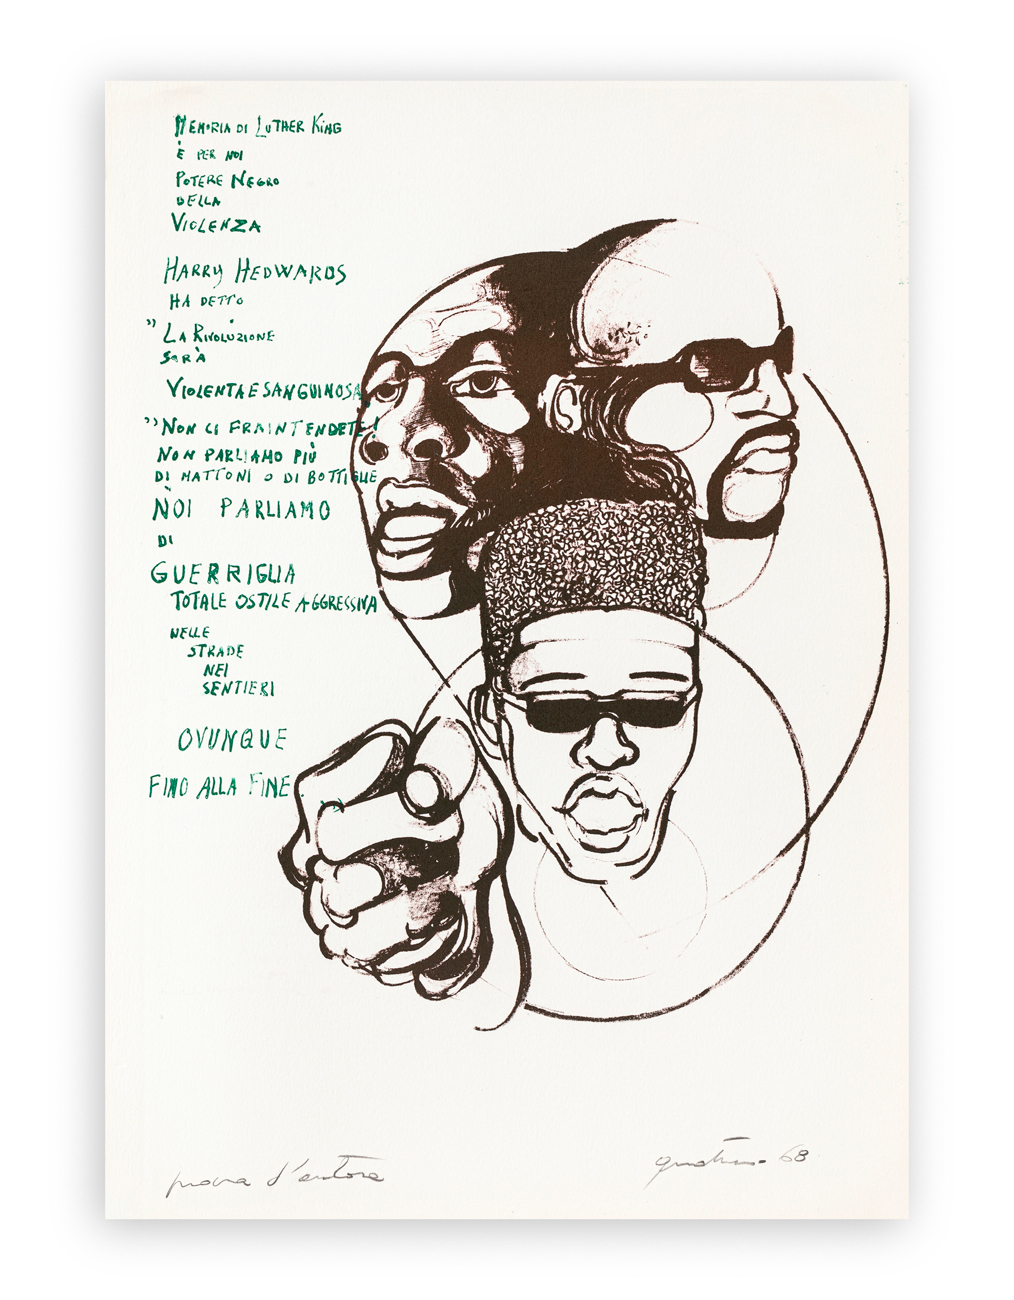 MEMORIA DI LUTHER KING
È PER NOI
POTERE NEGRO
DELLA
VIOLENZA
HARRY HEDWARDS
HA DETTO
” LA RIVOLUZIONE
SARÀ
VIOLENTA E SANGUINOSA
” NON CI FRAINTENDETE!
NON PARLIAMO PIÙ
DI MATTONI O DI BOTTIGLIE
NOI PARLIAMO
DI
GUERRIGLIA
TOTALE OSTILE AGGRESSIVA
NELLE
STRADE
NEI
SENTIERI
OVUNQUE
FINO ALLA FINE . ”
prova d'autore
68